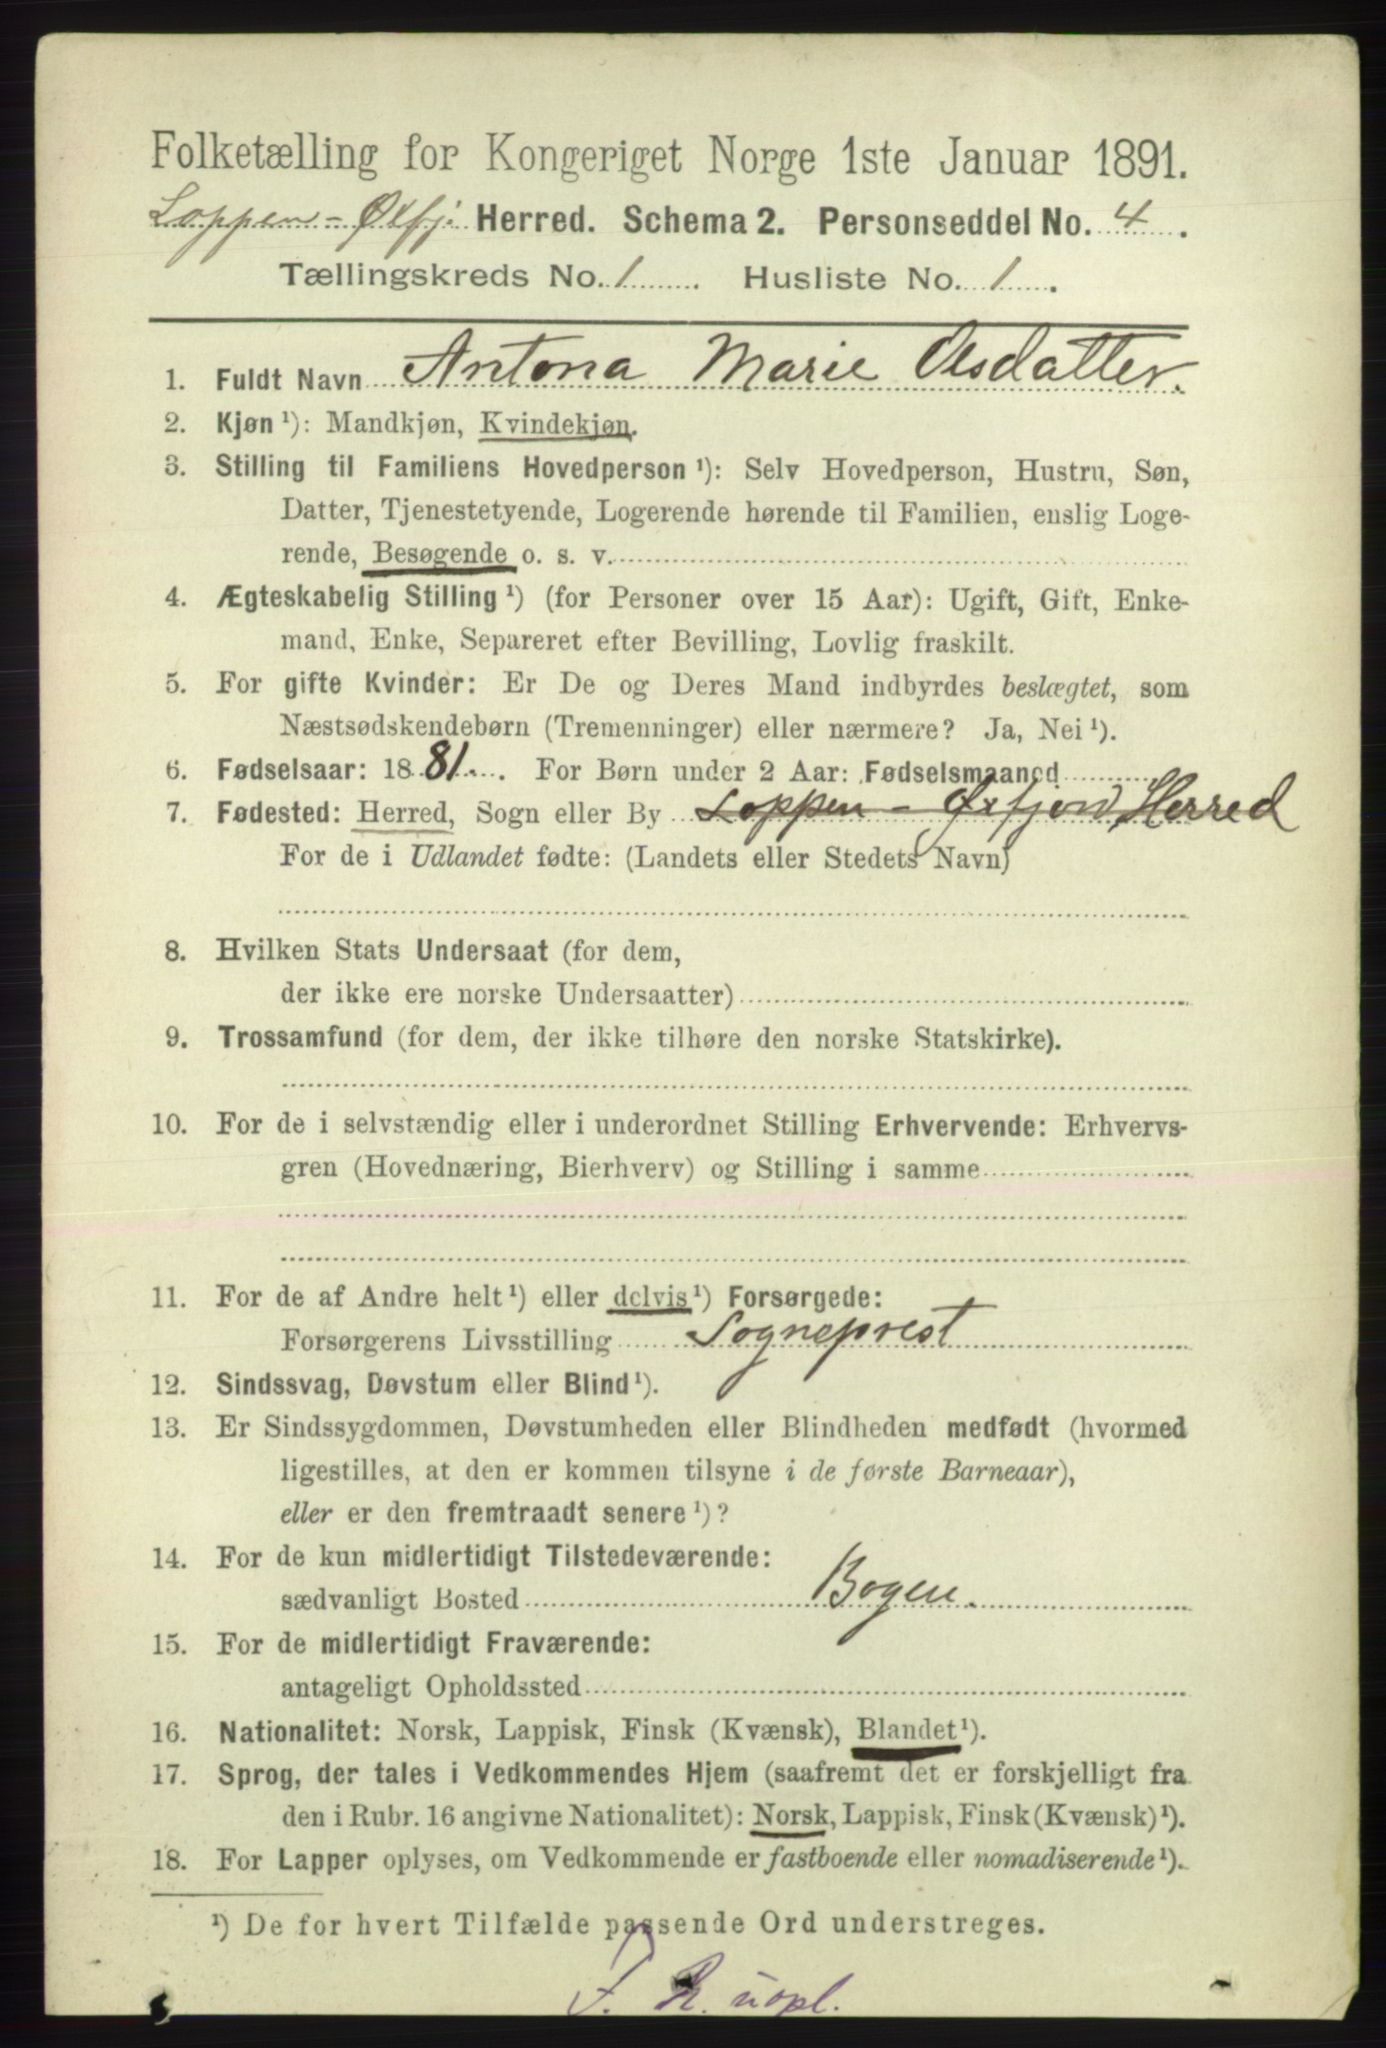 Folketælling for Kongeriget Norge 1ste Januar 1891.
Loppen - Øxfj. Herred. Schema 2. Personseddel No. 4.
Tællingskreds No. 1. Husliste No. 1.
1. Fuldt Navn Antona Marie Olsdatter.
2. Kjøn ¹): Mandkjøn, Kvindekjøn.
3. Stilling til Familiens Hovedperson ¹): Selv Hovedperson, Hustru, Søn,
Datter, Tjenestetyende, Logerende hørende til Familien, enslig Loge-
rende, Besøgende o. s. v.
4. Ægteskabelig Stilling ¹) (for Personer over 15 Aar): Ugift, Gift, Enke-
mand, Enke, Separeret efter Bevilling, Lovlig fraskilt.
5. For gifte Kvinder: Er De og Deres Mand indbyrdes beslægtet, som
Næstsødskendebørn (Tremenninger) eller nærmere? Ja, Nei ¹).
6. Fødselsaar: 1881. For Børn under 2 Aar: Fødselsmaaned
7. Fødested: Herred, Sogn eller By Loppen - Øxfjord Herred
For de i Udlandet fødte: (Landets eller Stedets Navn)
8. Hvilken Stats Undersaat (for dem,
der ikke ere norske Undersaatter)
9. Trossamfund (for dem, der ikke tilhøre den norske Statskirke).
10. For de i selvstændig eller i underordnet Stilling Erhvervende: Erhvervs-
gren (Hovednæring, Bierhverv) og Stilling i samme
11. For de af Andre helt ¹) eller delvis ¹) Forsørgede:
Forsørgerens Livsstilling Sogneprest
12. Sindssvag, Døvstum eller Blind ¹).
13. Er Sindssygdommen, Døvstumheden eller Blindheden medfødt (hvormed
ligestilles, at den er kommen tilsyne i de første Barneaar),
eller er den fremtraadt senere ¹)?
14. For de kun midlertidigt Tilstedeværende:
sædvanligt Bosted Bogen.
15. For de midlertidigt Fraværende:
antageligt Opholdssted
16. Nationalitet: Norsk, Lappisk, Finsk (Kvænsk), Blandet ¹).
17. Sprog, der tales i Vedkommendes Hjem (saafremt det er forskjelligt fra
den i Rubr. 16 angivne Nationalitet): Norsk, Lappisk, Finsk (Kvænsk) ¹).
18. For Lapper oplyses, om Vedkommende er fastboende eller nomadiserende ¹).
¹) De for hvert Tilfælde passende Ord understreges.
F. R. uopl.